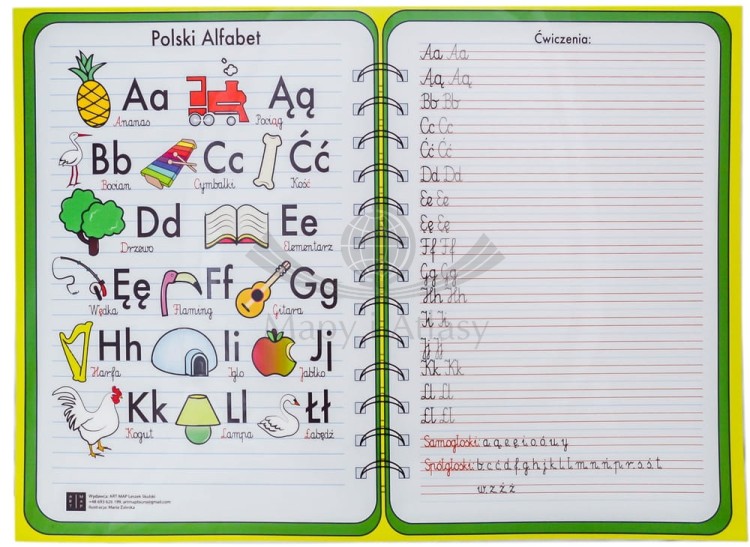 Polski Alfabet
Aa Ąą
Ananas Pociąg
Bb Cc Ćć
Bocian Cymbałki Kość
Dd Ee
Drzewo Elementarz
Ęę Ff Gg
Wędka Flaming Gitara
Hh Ii Jj
Harfa Iglo Jabłko
Kk Ll Łł
Kogut Lampa Łabędź
ART MAP
Wydawca: ART-MAP Leszek Skulski
Ilustracje: Maria Zaleska
Mapy i Atlasy
Ćwiczenia:
Aa Aa
Ąą Ąą
Bb Bb
Cc Cc
Ćć Ćć
Dd Dd
Ee Ee
Ęę Ęę
Ff Ff
Gg Gg
Hh Hh
Ii Ii
Jj Jj
Kk Kk
Ll Ll
Łł Łł
Samogłoski: a, ą, e, ę, i, o, ó, u, y
Spółgłoski: b, c, ć, d, f, g, h, j, k, l, ł, m, n, ń, p, r, s, ś, t
w, z, ź, ż